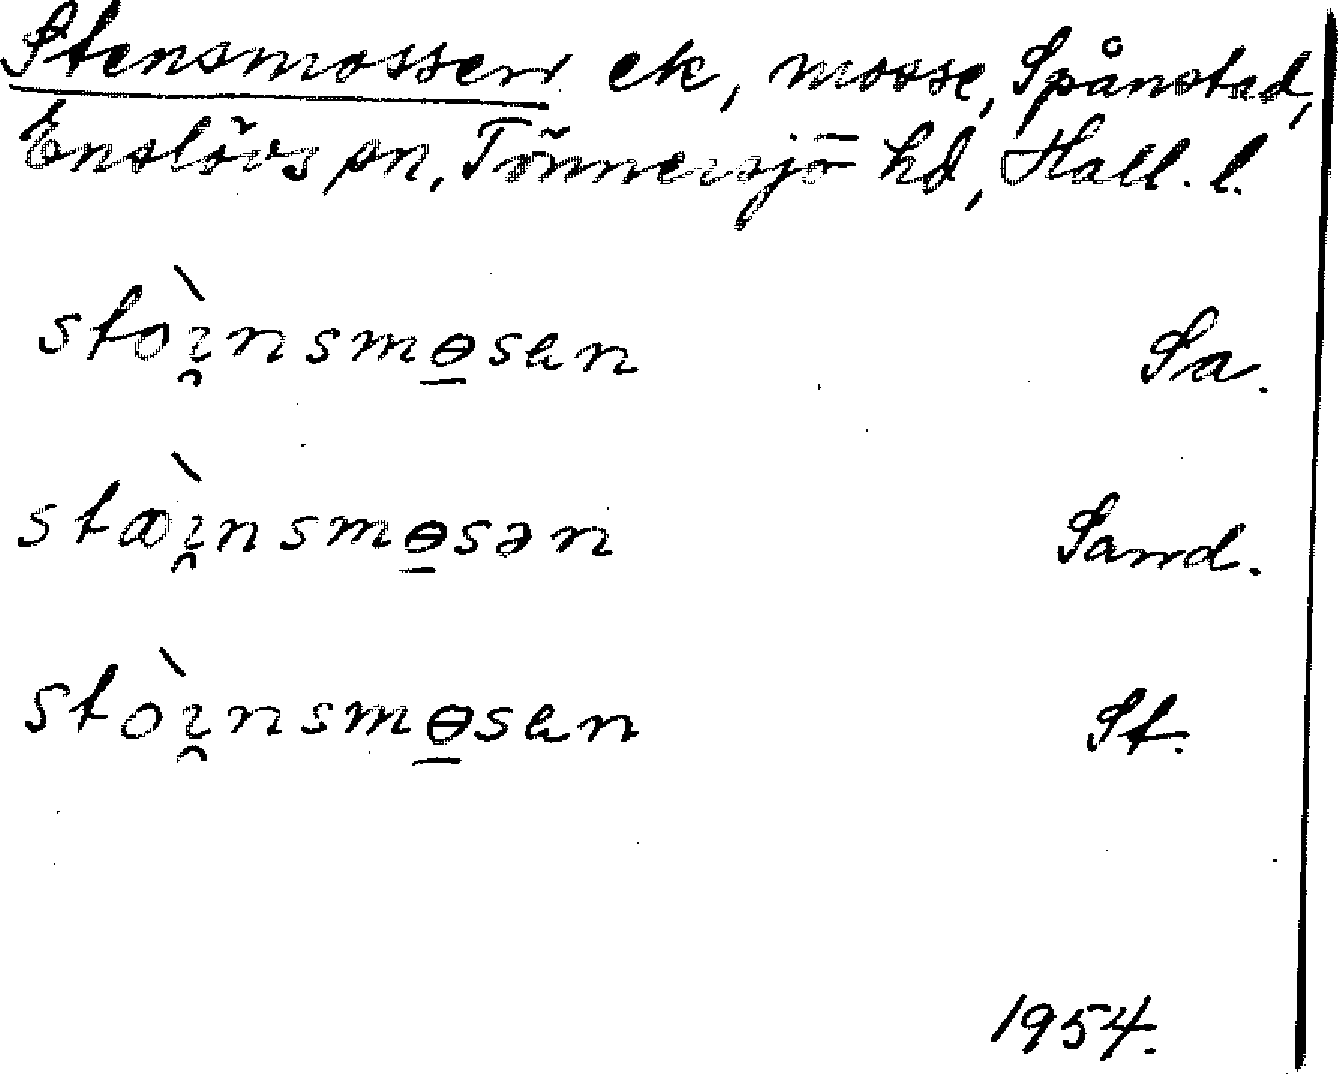 Stensmossen ek, mosse, Spånstad,
Enslövs sn, Tönnersjö hd, Hall. l.
stoı̯̀nsmɵ̲san Sa.
stæı̯̀nsmɵ̲sən Sand.
stoı̯̀nsmɵ̲san St.
1954.